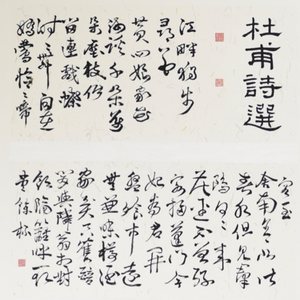 杜甫詩選
江畔獨步
尋花
黃四娘家花
滿蹊千朵萬
朵壓枝低
留連戲蝶
時時舞自在
嬌鶯恰恰啼
客至
舍南舍北皆
春水但見群
鷗日日來
花徑不曾緣
客掃蓬門今
始為君開
盤飧市遠
無兼味樽酒
家貧只舊醅
肯與鄰翁相對
飲隔籬呼取
盡餘杯